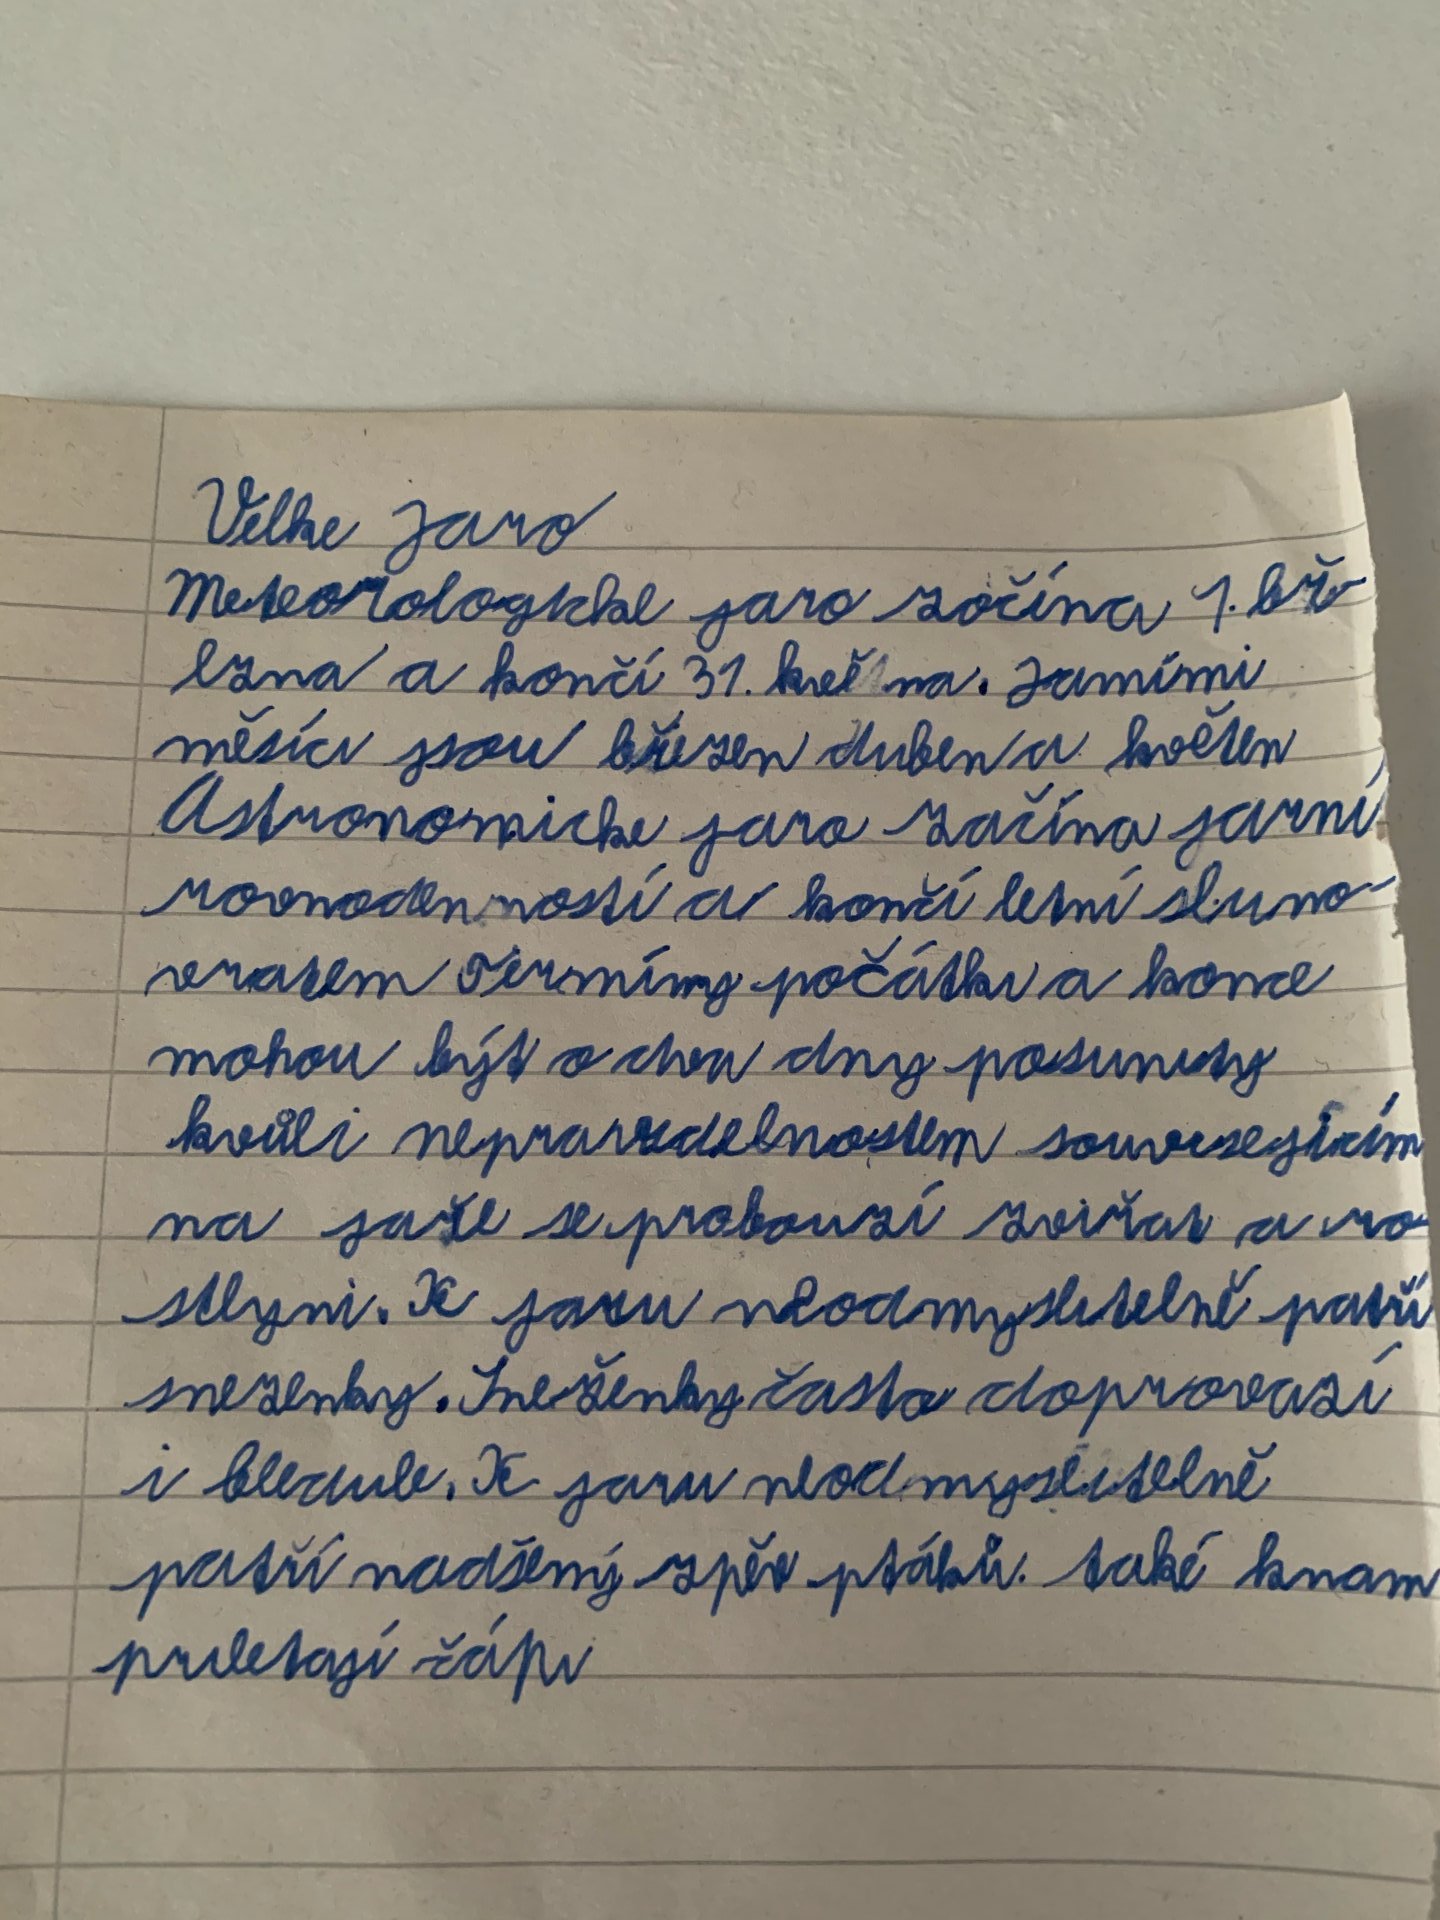 Velke jaro
Meteorologicke jaro začína 1. bř-
ezna a končí 31. května. Jarními
měsíci jsou březen duben a květen
Astronomicke jaro začína jarní
rovnodenností a končí letní sluno-
vratem Termíny počátku a konce
mohou být o dva dny posunuty
kvůli nepravidelnostem
na jaře se probouzí zviřat a ro-
stlyni. K jaru neodmyslitelně patří
snezenky. Sneženky často doprovazí
i bledule. K jaru neodmyslitelně
patří nadšený zpěv ptáků. také knam
priletají čápi